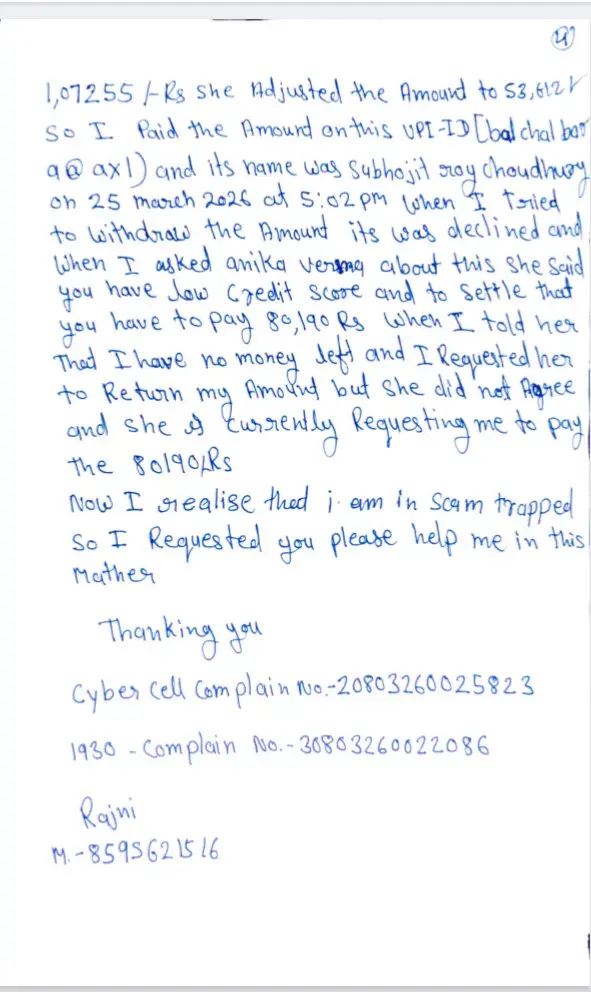 4
1,07255/-Rs she Adjusted the Amount to 53,612
So I Paid the Amound on this UPI-ID [balchalbar
a@axl) and its name was Subhojit roy choudhury
on 25 march 2026 at 5:02pm When I Tried
to withdraw the Amount its was declined and
When I asked anika verma about this she said
you have low Credit score and to settle that
you have to pay 80,190 Rs When I told her
That I have no money left and I Requested her
to Return my Amount but she did not Agree
and she is Currendly Requesting me to pay
the 80190/Rs
Now I realise thed i am in Scam trapped
So I Requested you please help me in this
Mather
Thanking you
Cyber Cell Complain No.-20803260025823
1930 - Complain No.-30803260022086
Rajni
M.-8595621516